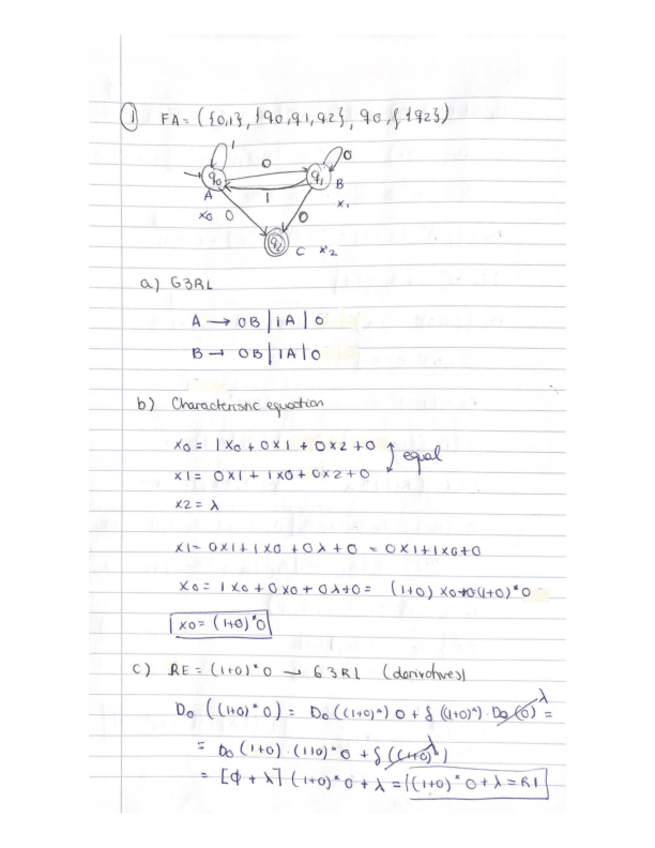 1 FA = ({0,1}, {q0,q1,q2}, q0, {{q2})
1
0
0
q0
q1
B
A
1
x1
x0 0
0
q2
C x2
a) G3RL
A → 0B | 1A | 0
B → 0B | 1A | 0
b) Characteristic equation
x0 = 1x0 + 0x1 + 0x2 + 0
equal
x1 = 0x1 + 1x0 + 0x2 + 0
x2 = λ
x1 = 0x1 + 1x0 + 0λ + 0 = 0x1 + 1x0 + 0
x0 = 1x0 + 0x0 + 0λ + 0 = (1+0) x0 + 0 (1+0)*0
x0 = (1+0)*0
c) RE = (1+0)*0 → G3RL (derivatives)
D0 ((1+0)*0) = D0((1+0)*) 0 + δ((1+0)*) · D0(0) =
λ
= D0 (1+0) · (1+0)*0 + δ((1+0)*)
λ
= [Φ + λ] (1+0)*0 + λ = (1+0)*0 + λ = R1